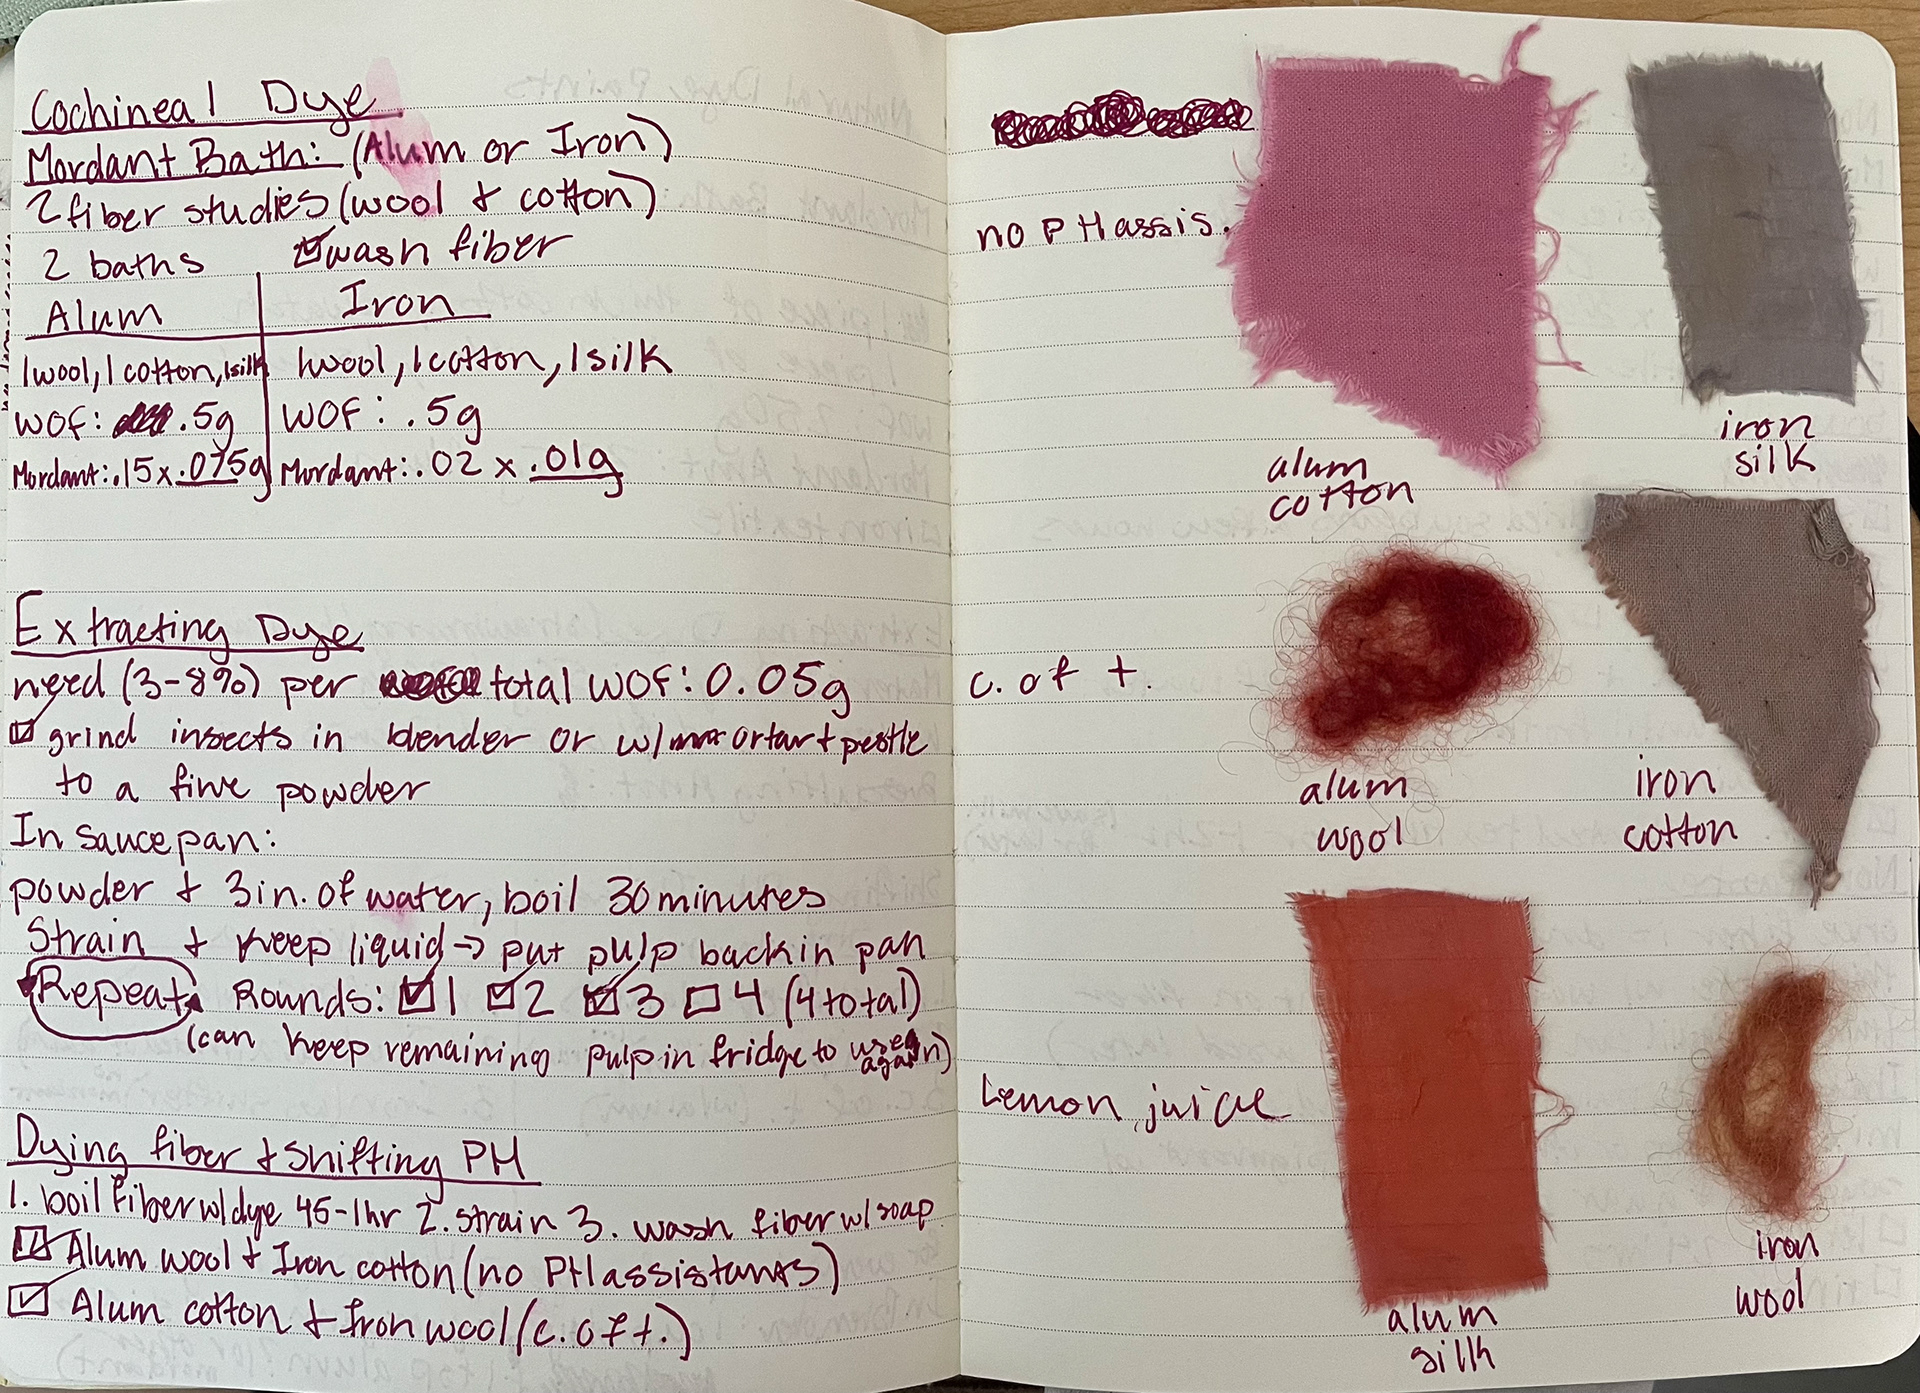 Cochineal Dye
Mordant Bath: (Alum or Iron)
2 fiber studies (wool + cotton)
2 baths ☑ wash fiber
Alum Iron
1 wool, 1 cotton, 1 silk 1 wool, 1 cotton, 1 silk
WOF: .5g WOF: .5g
Mordant: .15 x .075g Mordant: .02 x .01g
Extracting Dye
need (3-8%) per total WOF: 0.05g
☑ grind insects in blender or w/ mortar + pestle
to a fine powder
In saucepan:
powder + 3in. of water, boil 30 minutes
Strain + keep liquid → put pulp back in pan
Repeat Rounds: ☑ 1 ☑ 2 ☑ 3 ☐ 4 (4 total)
(can keep remaining pulp in fridge to use again)
Dying fiber + shifting PH
1. boil fiber w/ dye 45-1hr 2. strain 3. wash fiber w/ soap
☑ Alum wool + Iron cotton (no PH assistants)
☑ Alum cotton + Iron wool (c. of t.)
no PH assis.
alum
cotton
iron
silk
c. of t.
alum
wool
iron
cotton
Lemon juice
alum
silk
iron
wool